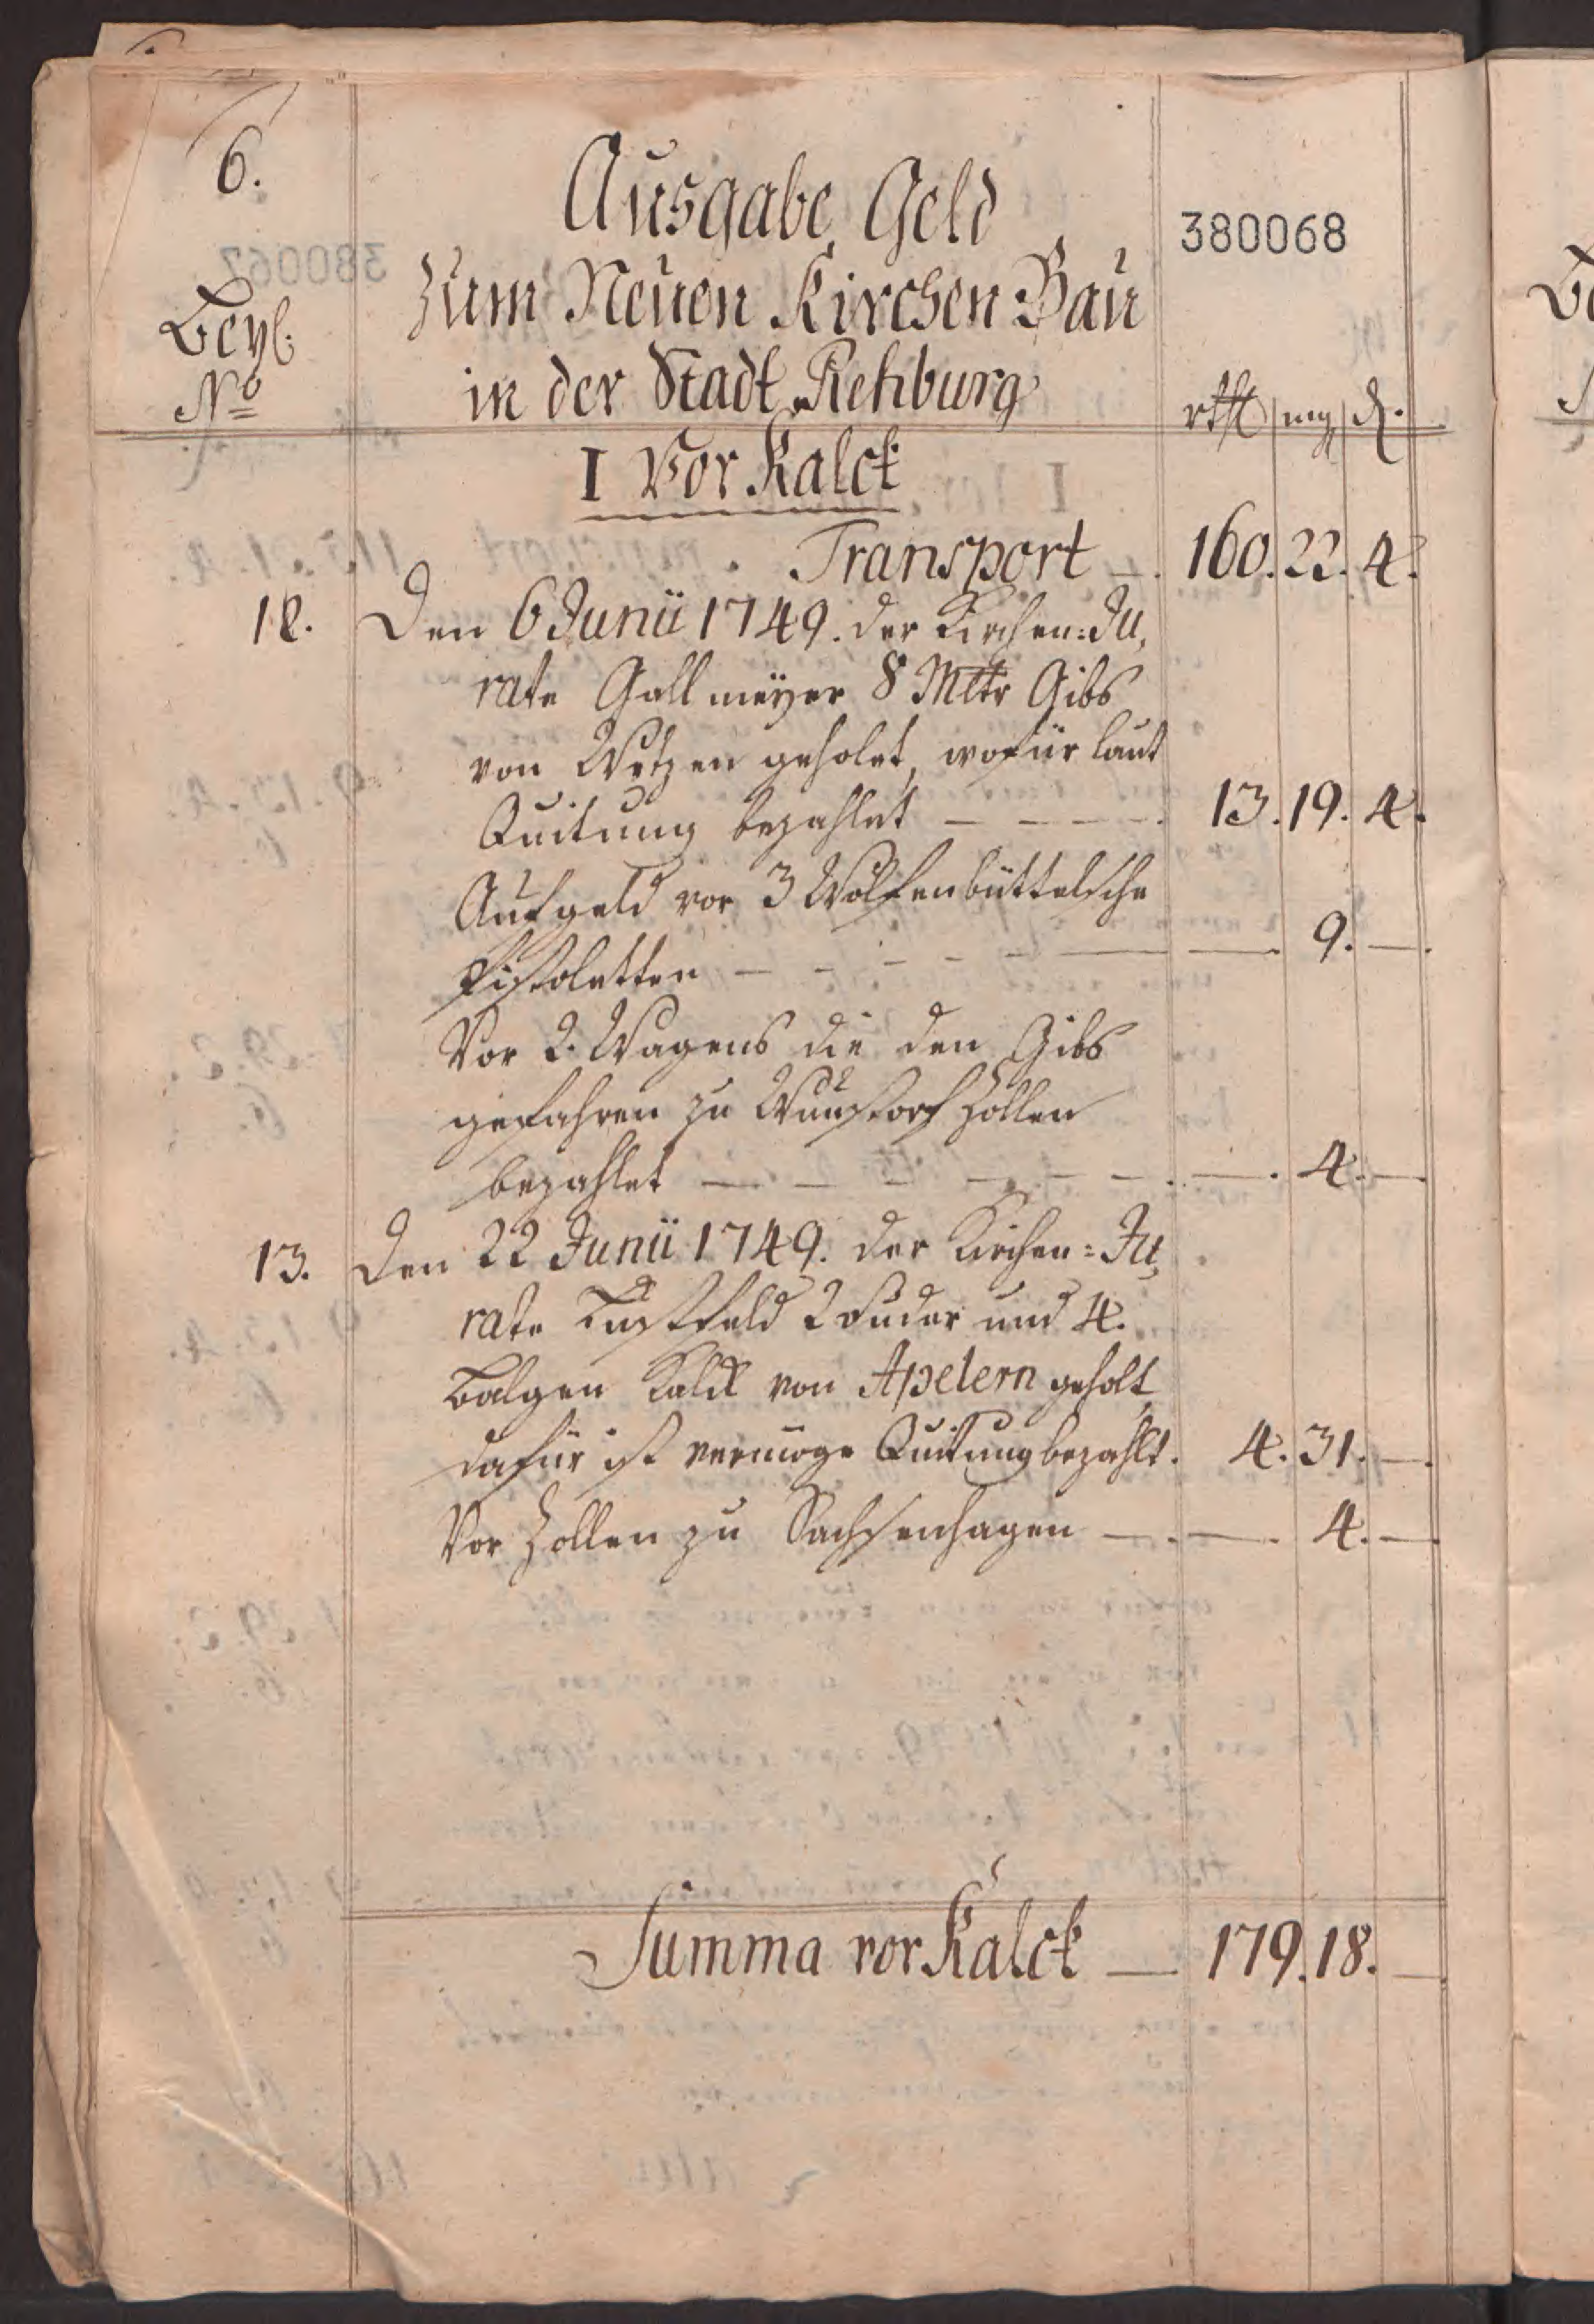 6.
Ausgabe Geld
380068
Zum Neuen Kirchen Bau
Beyl.
No
in der Stadt Rehburg
rthl mg d.
I Vor Kalck
Transport — 160. 22. 4.
12. Den 6 Junii 1749. der Kirchen=Ju,
rate Gallmeyer 8 Mltr Gibs
von Wetzen geholet, wofür laut
Quitung bezahlet — — — — 13. 19. 4.
Aufgeld vor 3 Wolfenbüttelsche
Pistoletten — — — — — — 9. —
Vor 2. Wagens die den Gibs
gefahren zu Wunstorf Zollen
bezahlet — — — — — — — 4. —
13. Den 22 Junii 1749. der Kirchen=Ju,
rate Bustfeld 2 Fuder und 4.
Balgen Kalck von Apelern geholt
dafür ist vermöge Quitung bezahlt. 4. 31. —
Vor Zollen zu Sachsenhagen — — 4. —
Summa vor Kalck — 179. 18. —